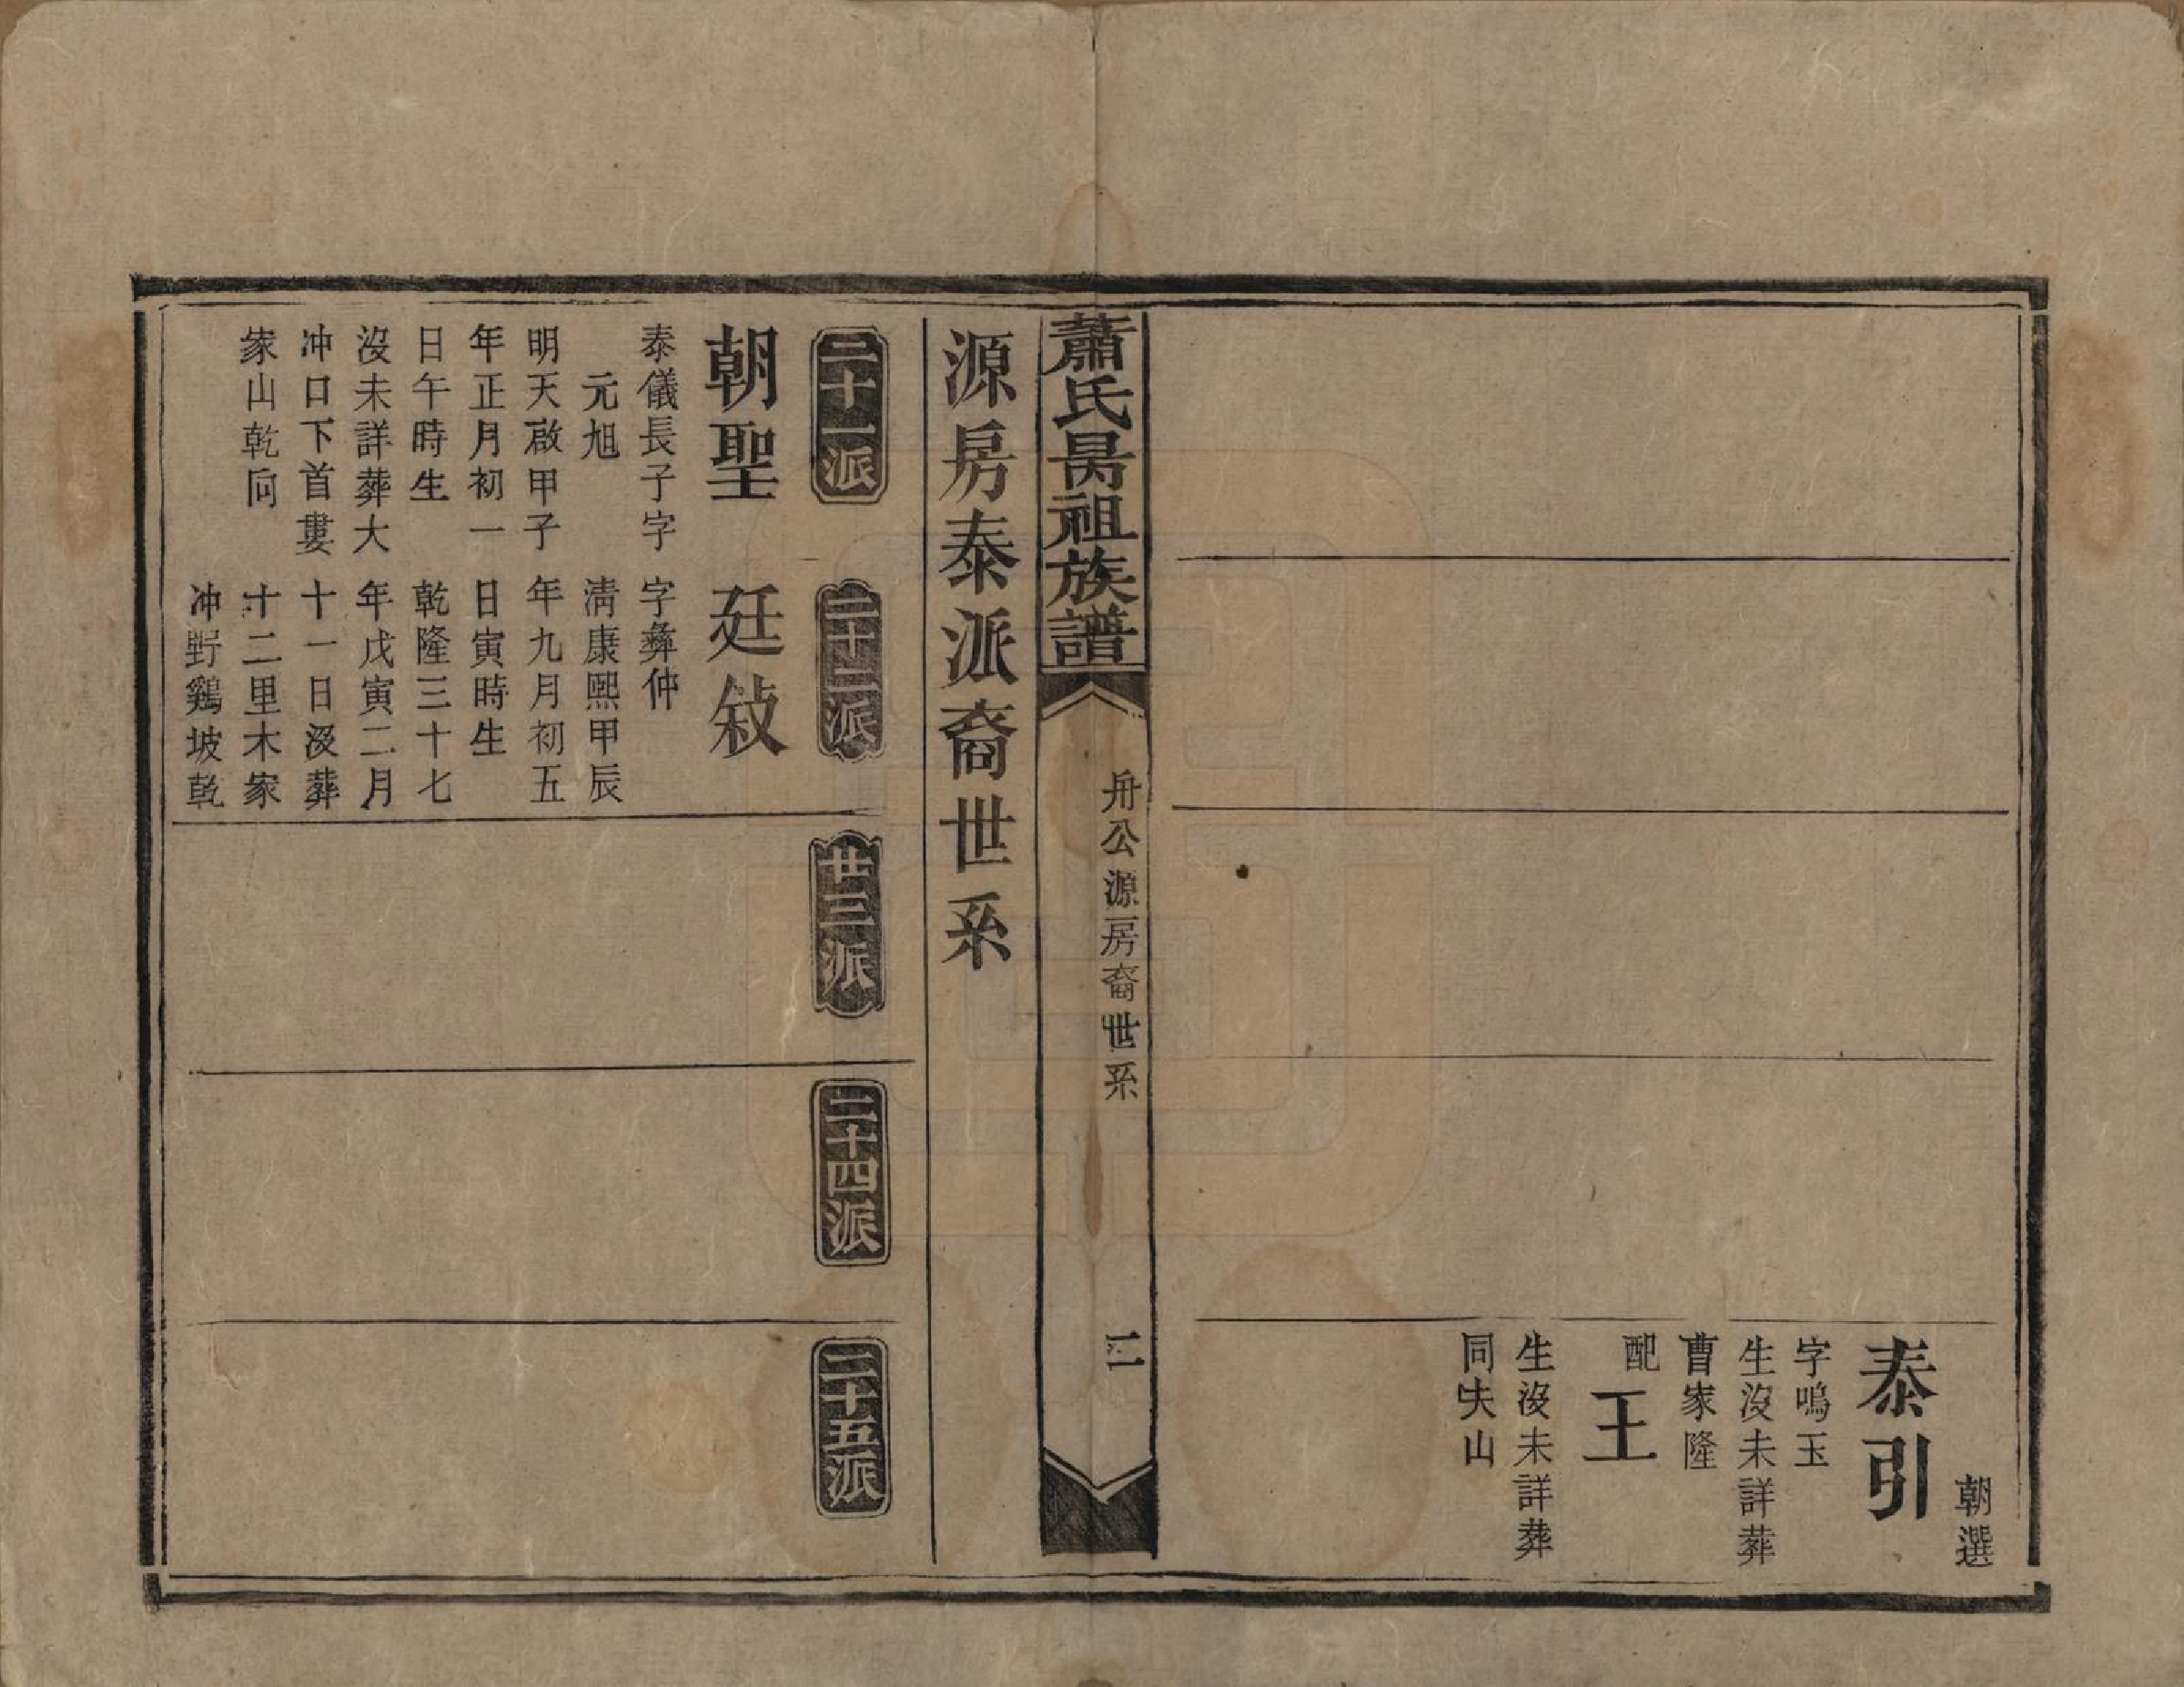 朝選
泰引
字鳴玉
生沒未詳葬
曹家隆
配王
生沒未詳葬
同失山
蕭氏昺祖族譜
冊公源房裔世系
二
源房泰派裔世系
二十一派
朝聖
泰儀長子字
元旭
明天啟甲子
年正月初一
日午時生
沒未詳葬大
冲口下首婁
家山乾向
二十二派
廷敍
字彝仲
淸康熙甲辰
年九月初五
日寅時生
乾隆三十七
年戊寅二月
十一日沒葬
十二里木家
冲野鷄坡乾
廿三派
二十四派
二十五派